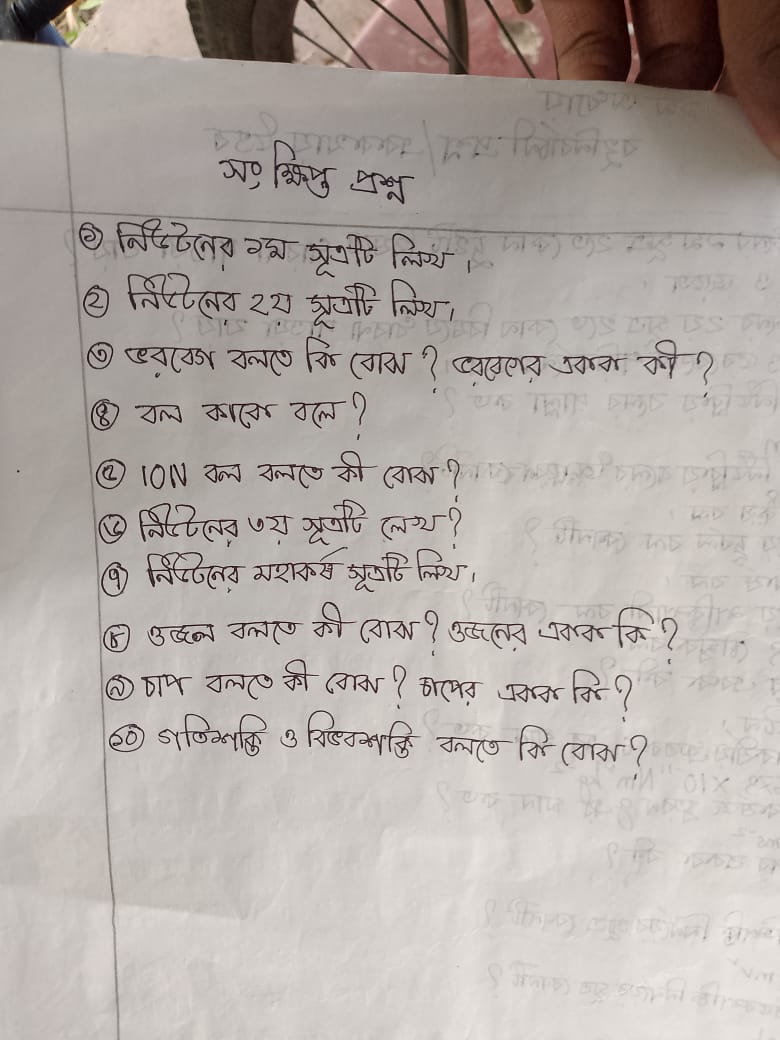 সংক্ষিপ্ত প্রশ্ন
১ নিউটনের ১ম সূত্রটি লিখ।
২ নিউটনের ২য় সূত্রটি লিখ।
৩ ভরবেগ বলতে কি বোঝ? ভরবেগের একক কী?
৪ বল কাকে বলে?
৫ 10N বল বলতে কী বোঝ?
৬ নিউটনের ৩য় সূত্রটি লেখ?
৭ নিউটনের মহাকর্ষ সূত্রটি লিখ।
৮ ওজন বলতে কী বোঝ? ওজনের একক কি?
৯ চাপ বলতে কী বোঝ? চাপের একক কি?
১০ গতিশক্তি ও বিভবশক্তি বলতে কি বোঝ?